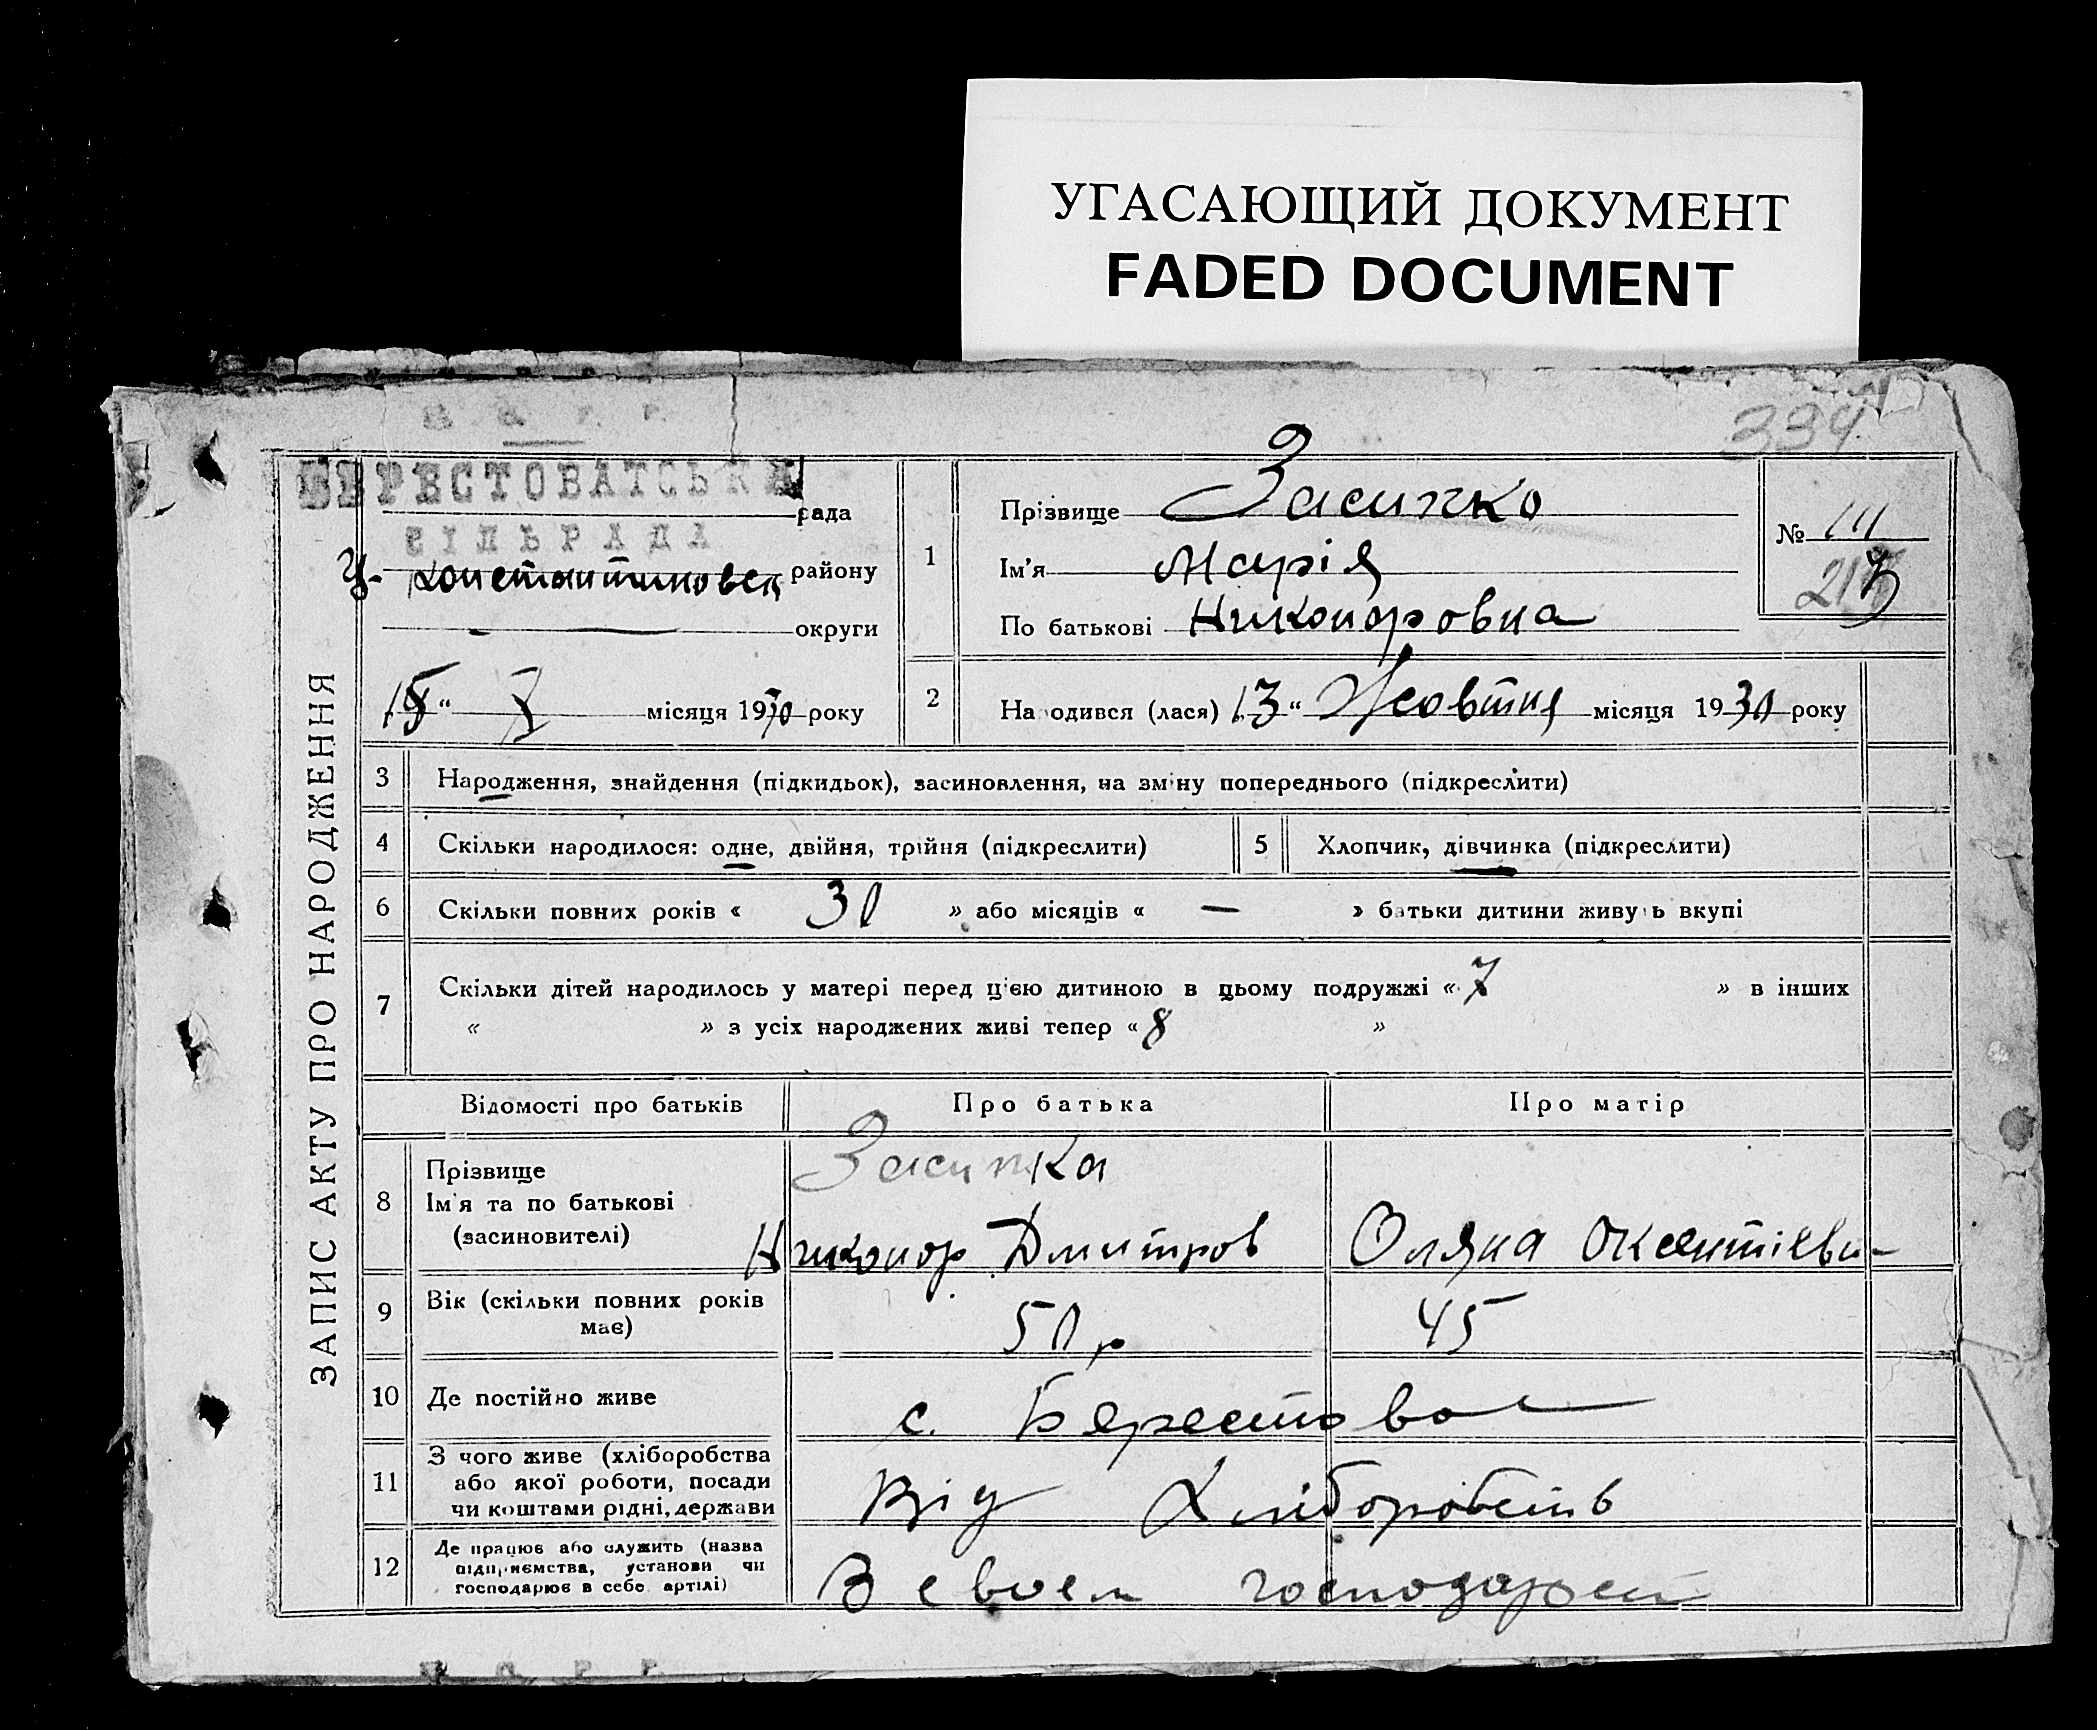 УГАСАЮЩИЙ ДОКУМЕНТ
FADED DOCUMENT
334
ЗАПИС АКТУ ПРО НАРОДЖЕННЯ
БЕРЕСТОВАТСЬКА рада
СІЛЬРАДА
району
— округи
місяця 1930 року
1 Прізвище Засипко
Ім'я Марія
По батькові Никоноровна
№ 111
2 Народився (лася) 13 " Жовтня місяця 1930 року
3 Народження, знайдення (підкидьок), засиновлення, на зміну попереднього (підкреслити)
4 Скільки народилося: одне, двійня, трійня (підкреслити) 5 Хлопчик, дівчинка (підкреслити)
6 Скільки повних років « 30 » або місяців « — » батьки дитини живуть вкупі
7 Скільки дітей народилось у матері перед цією дитиною в цьому подружжі « 7 » в інших
« » з усіх народжених живі тепер « 8 »
Відомості про батьків Про батька Про матір
8 Прізвище
Ім'я та по батькові
(засиновителі)
Засипка
Никонор Дмитров
Оляна
9 Вік (скільки повних років
має)
50 р
45
10 Де постійно живе
с. Берестова
11 З чого живе (хліборобства
або якої роботи, посади
чи коштами рідні, держави
Від Хліборобств
12 Де працює або служить (назва
підприємства, установи чи
господарює в себе артілі)
В своем господарст